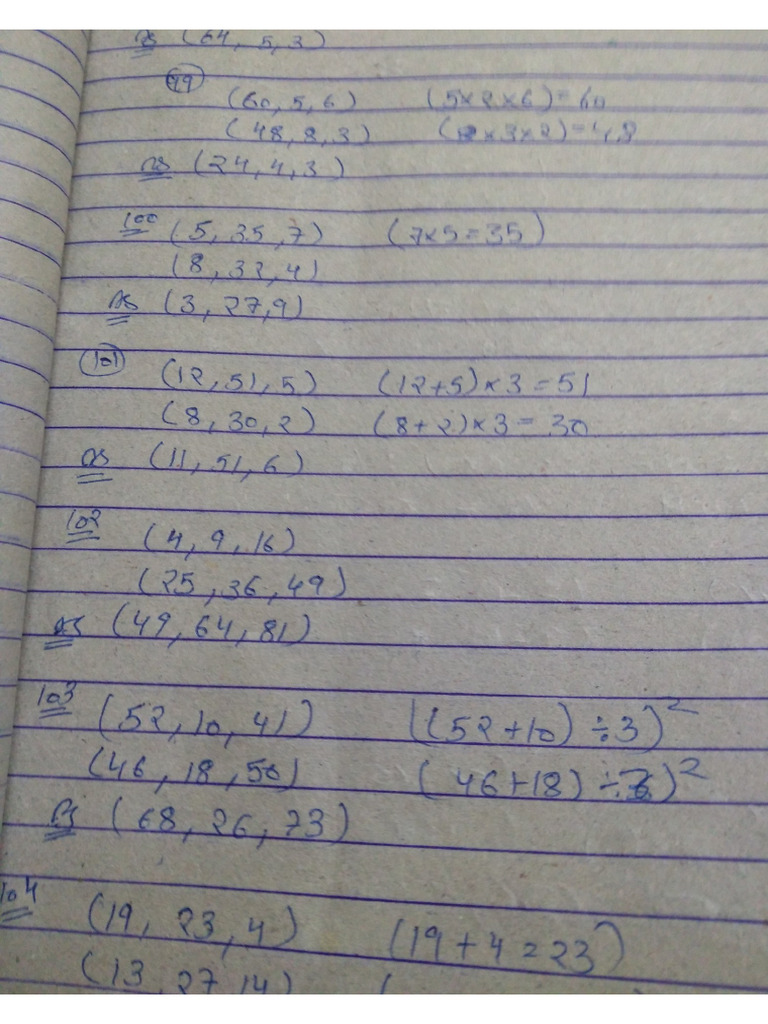 As (64, 5, 3)
99
(60, 5, 6) (5×2×6)=60
(48, 8, 3) (8×3×2)=48
as (24, 4, 3)
100 (5, 35, 7) (7×5=35)
(8, 32, 4)
As (3, 27, 9)
101 (12, 51, 5) (12+5)×3=51
(8, 30, 2) (8+2)×3=30
as (11, 51, 6)
102 (4, 9, 16)
(25, 36, 49)
As (49, 64, 81)
103 (52, 10, 41) ((52+10)÷3)²
(46, 18, 50) (46+18)÷3)²
As (68, 26, 73)
104 (19, 23, 4) (19+4=23)
(13, 27, 14) (